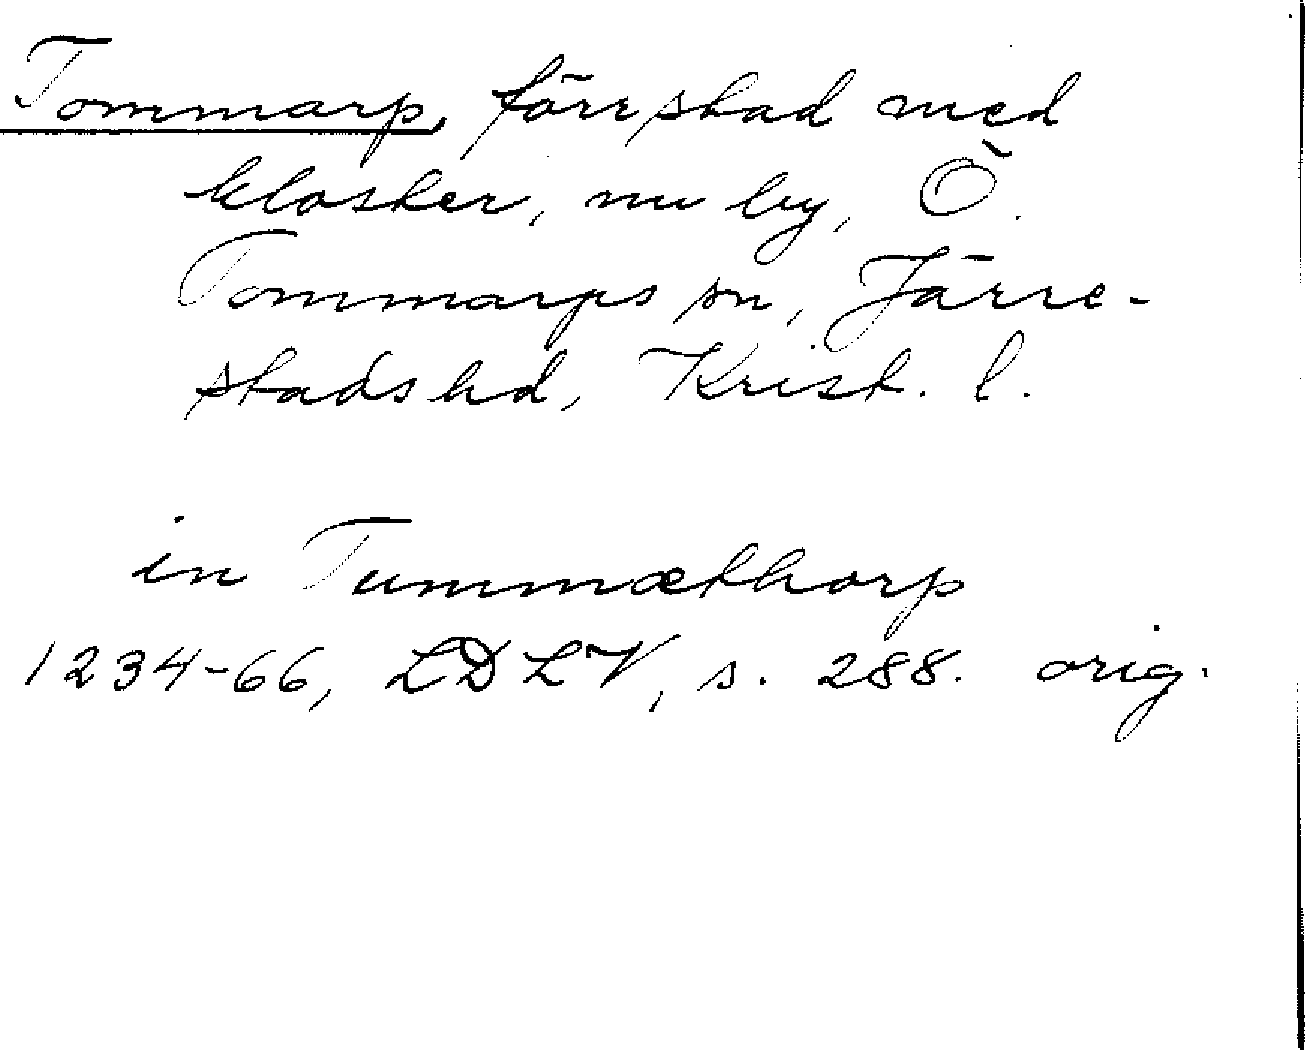 Tommarp, förr stad med
kloster, nu by, Ö.
Tommarps sn, Järre-
stads hd, Krist. l.
in Tummæthorp
1234-66, LDLV, s. 288. orig.